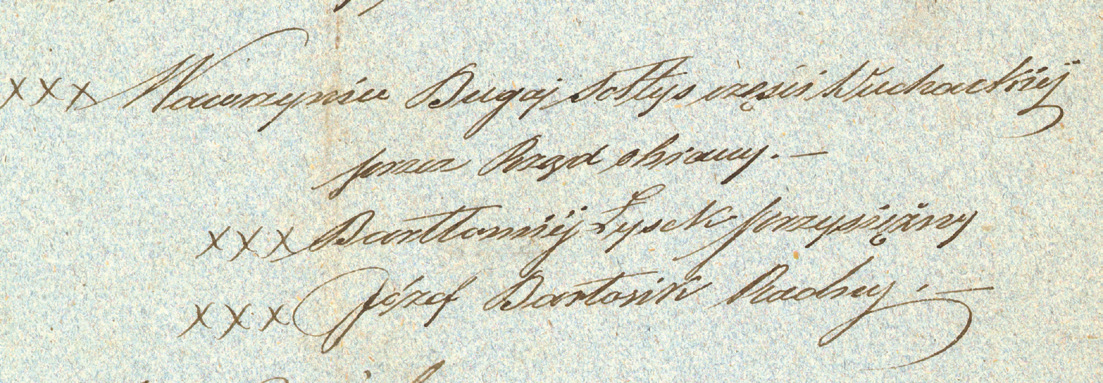 xxx Wawrzyniec Bugaj Sołtys części Duchackiéj
przez Rząd obrany.—
xxx Bartłomiéj Łysek przysiężny
xxx Józef Bartosik Radny.—